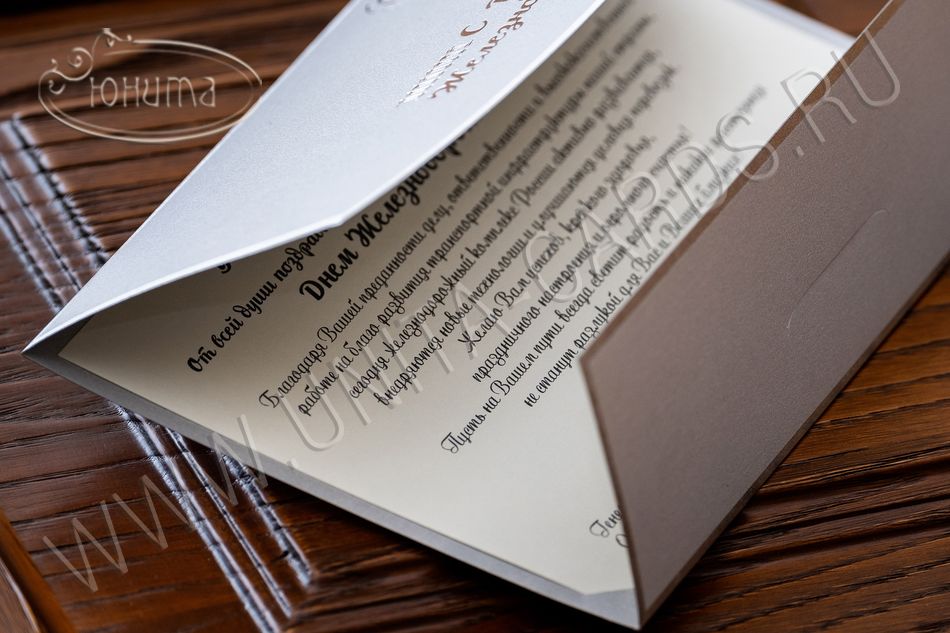 Юнита
WWW.UNITA-CARDS.RU
С
Железно
От всей души поздра
Днем Железнодор
Благодаря Вашей преданности делу, ответственности и
работе на благо развития транспортной инфраструктуры нашей страны,
сегодня Железнодорожный комплекс России активно развивается,
внедряются новые технологии и улучшаются условия перевозок.
Желаю Вам успехов, крепкого здоровья,
праздничного настроения и простого счастья!
Пусть на Вашем пути всегда светит радость и никакие
не станут разлукой для Вас и Ваших близких
Гене